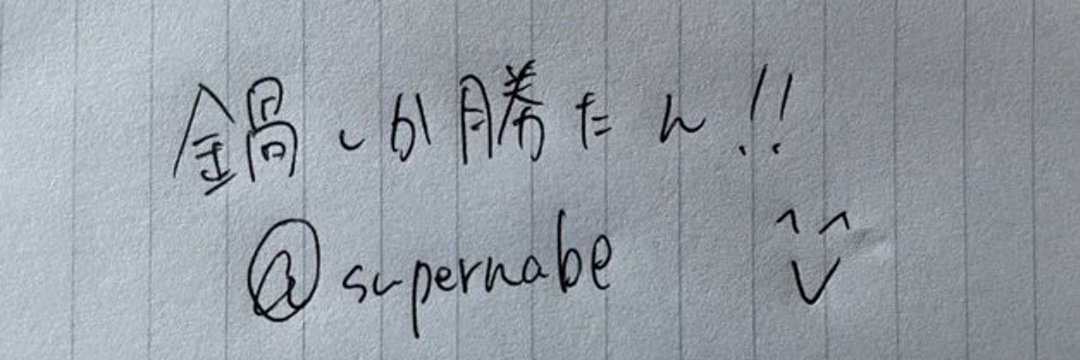 鍋しか勝たん!!
@supernabe